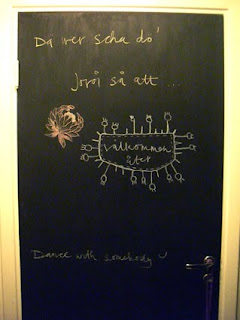 Da ver scha do'
Jorøi så att ...
Välkommen
åter
Dance with somebody